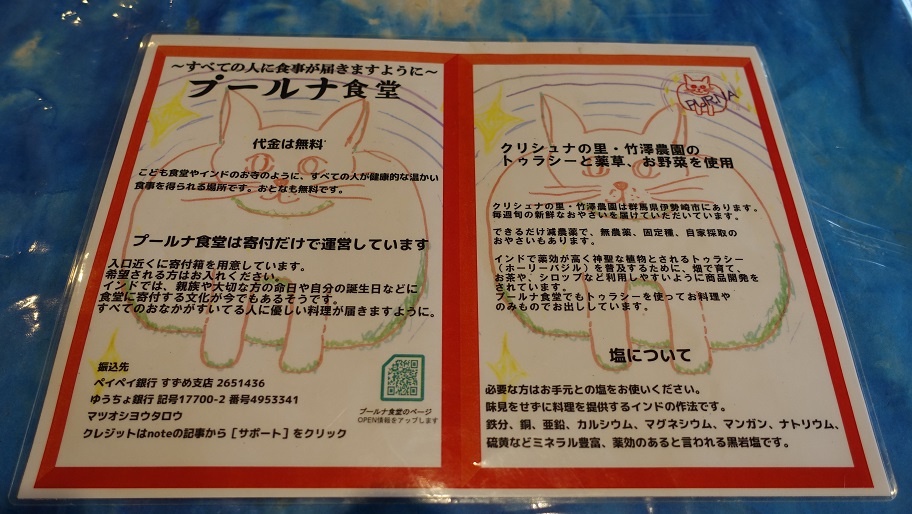 ～すべての人に食事が届きますように～
プールナ食堂
代金は無料
こども食堂やインドのお寺のように、すべての人が健康的な温かい
食事を得られる場所です。おとなも無料です。
プールナ食堂は寄付だけで運営しています
入口近くに寄付箱を用意しています。
希望される方はお入れください。
インドでは、親族や大切な方の命日や自分の誕生日などに
食堂に寄付する文化が今でもあるそうです。
すべてのおなかがすいてる人に優しい料理が届きますように。
振込先
ペイペイ銀行 すずめ支店 2651436
ゆうちょ銀行 記号17700-2 番号4953341
マツオシヨウタロウ
クレジットはnoteの記事から［サポート］をクリック
プールナ食堂のページ
OPEN情報をアップします
PURNA
クリシュナの里・竹澤農園の
トゥラシーと薬草、お野菜を使用
クリシュナの里・竹澤農園は群馬県伊勢崎市にあります。
毎週旬の新鮮なおやさいを届けていただいています。
できるだけ減農薬で、無農薬、固定種、自家採取の
おやさいもあります。
インドで薬効が高く神聖な植物とされるトゥラシー
（ホーリーバジル）を普及するために、畑で育て、
お茶や、シロップなど利用しやすいように商品開発を
されています。
プールナ食堂でもトゥラシーを使ってお料理や
のみものでお出ししています。
塩について
必要な方はお手元との塩をお使いください。
味見をせずに料理を提供するインドの作法です。
鉄分、銅、亜鉛、カルシウム、マグネシウム、マンガン、ナトリウム、
硫黄などミネラル豊富、薬効のあると言われる黒岩塩です。